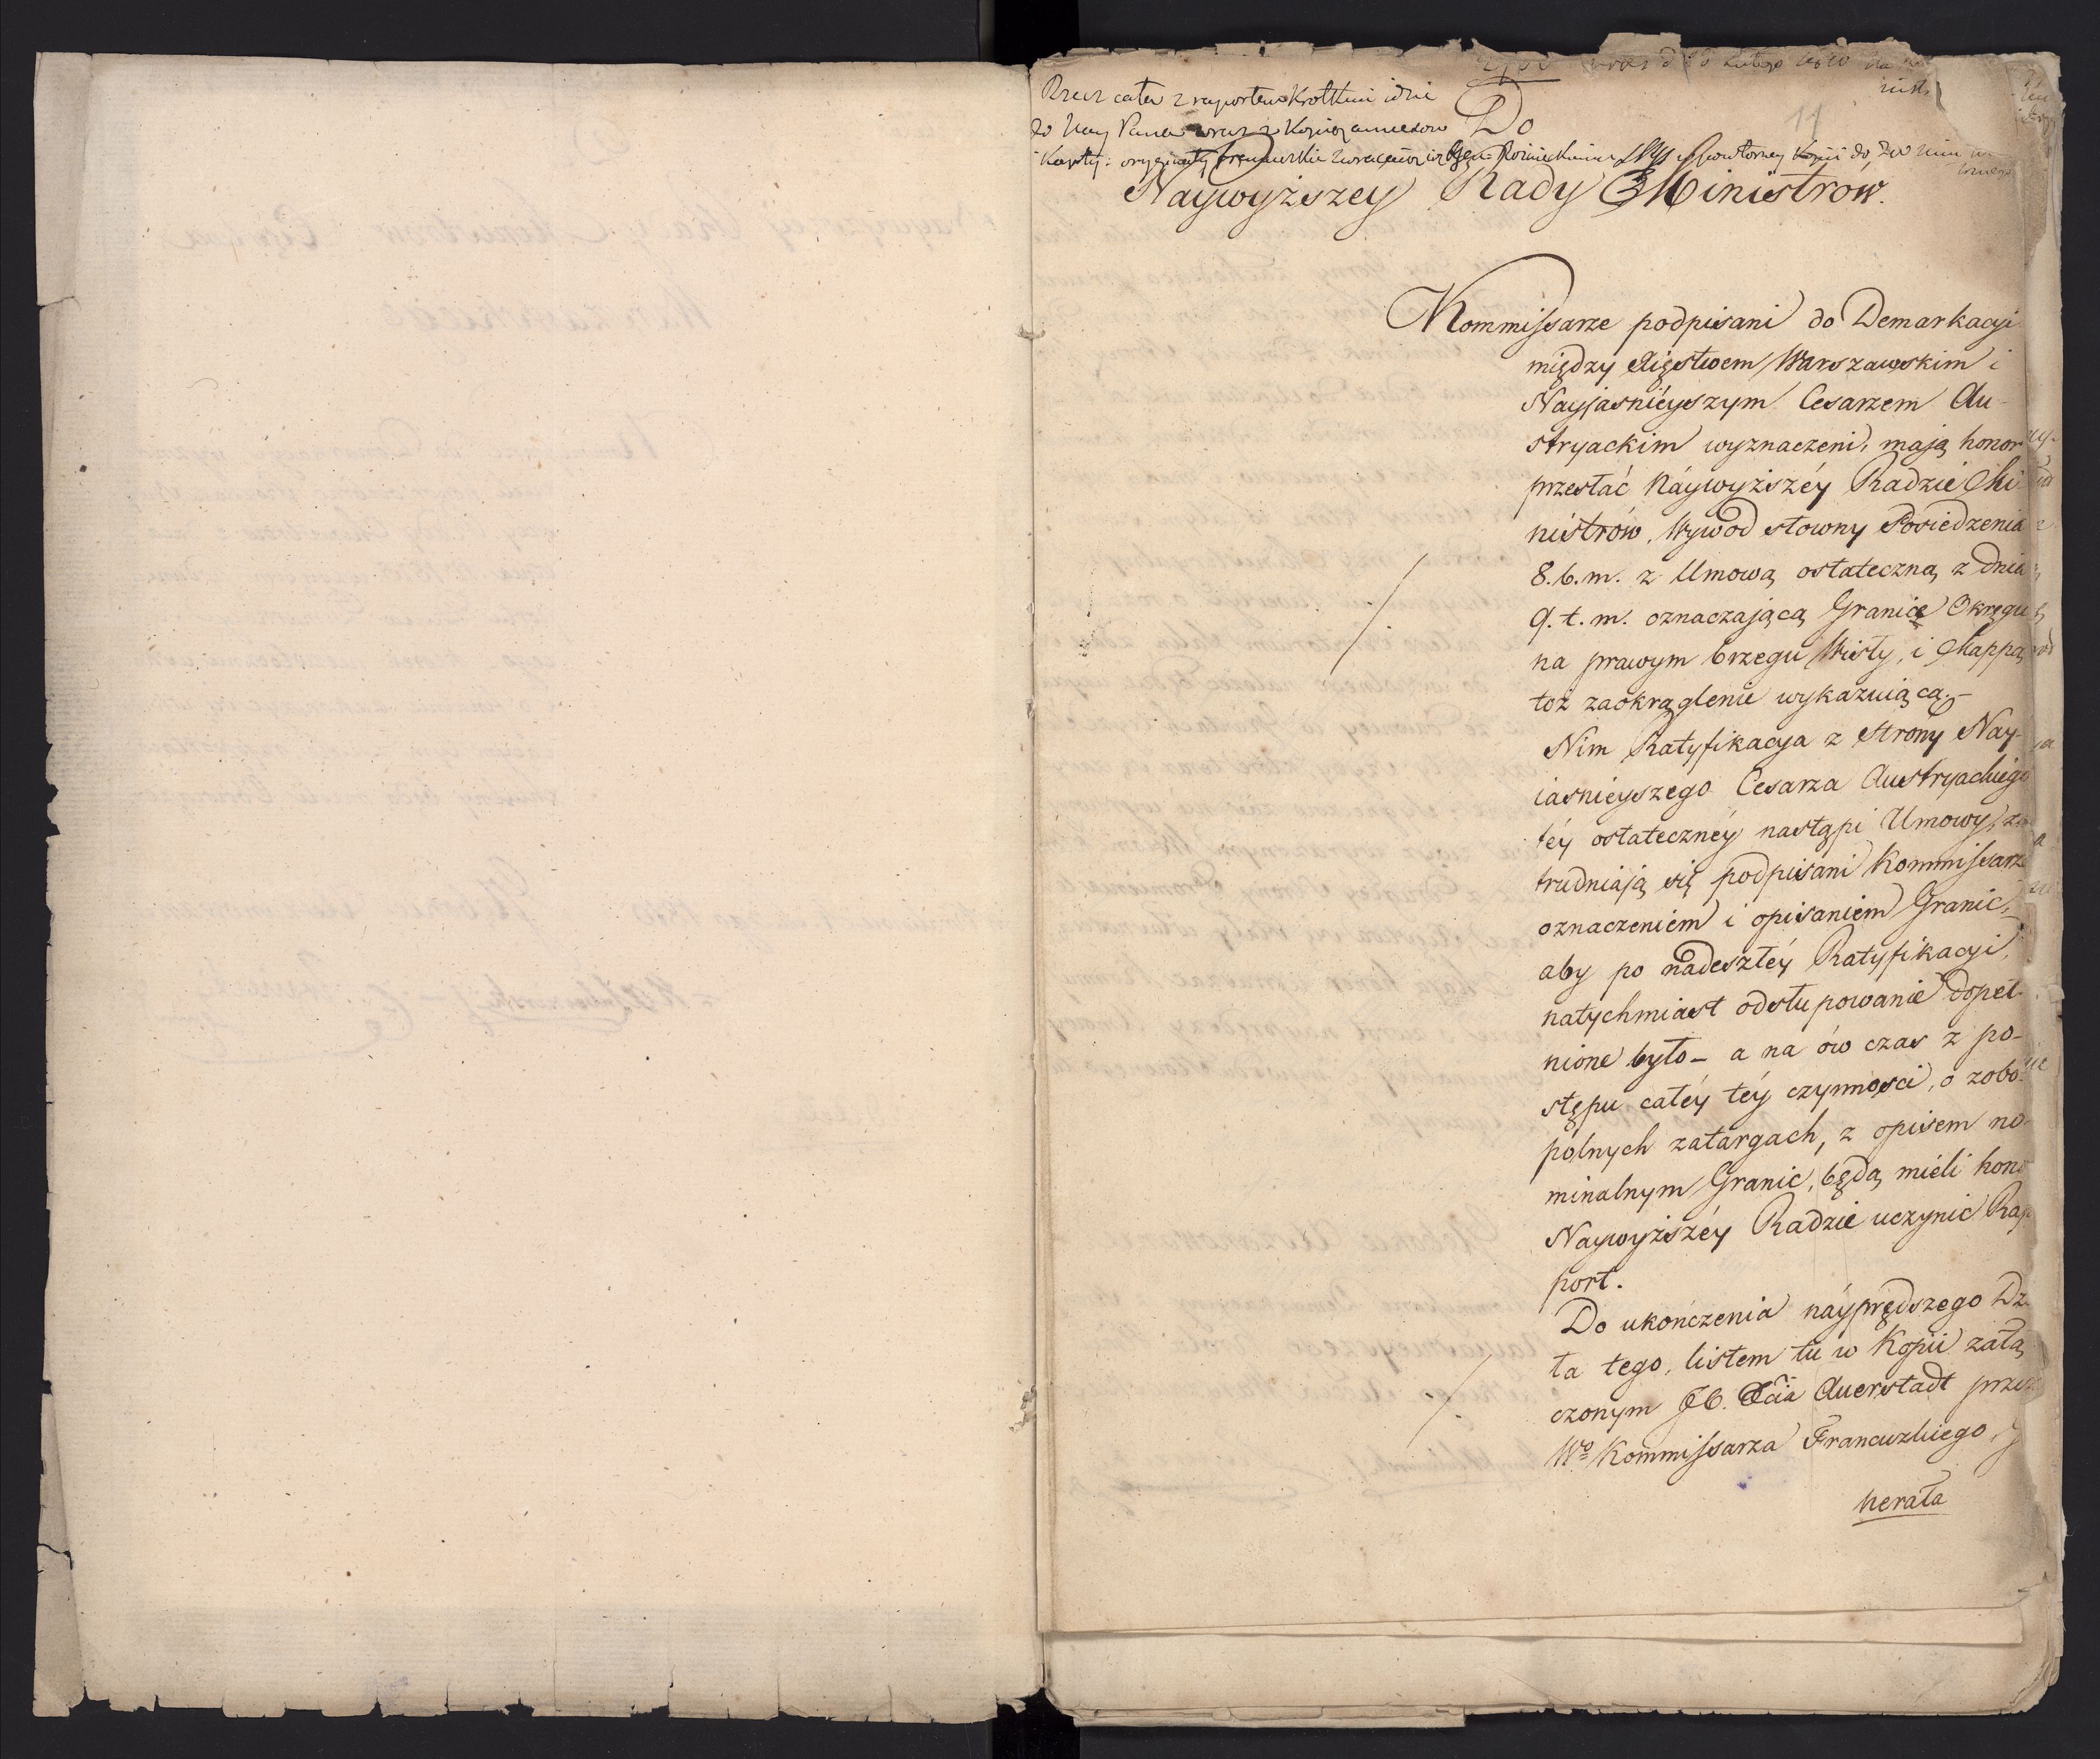 11
Rzecz cała z raportem krótkim idzie
do Nay Pana wraz z Kopią annexow
Do
Naywyższey Rady Ministrow.
Kommissarze podpisani do Demarkacyi
między Xięstwem Warszawskim i
Nayjasnieyszym Cesarzem Au-
stryackim wyznaczeni, mają honor
przesłać Náywyższéy Radzie Mi-
nistrów, Wywod słowny Posiedzenia
8. b. m. z Umową ostateczną z dnia
9. t. m. oznaczającą Granice Okręgu
na prawym brzegu Wisły, i Mappą
toż zaokrąglenie wykazuiącą.-
Nim Ratyfikacya z Strony Nay-
iasnieyszego Cesarza Austryackiego
téy ostatecznéy nastąpi Umowy, za
trudniają się podpisani Kommissarze
oznaczeniem i opisaniem Granic,
aby po nadeszłéy Ratyfikacyi,
natychmiast odstupowanie dopeł-
nione było - a na ów czas z po-
stępu całéy téy czynności, o zobo-
pólnych zatargach, z opisem no-
minalnym Granic, będą mieli hono
Naywyższéy Radzie uczynić Rap
port.
Do ukończenia náyprędszego Dz
ła tego, listem tu w Kopii załą
czonym JO. Xcia Auerstadt przez
Wo Kommissarza Francuzkiego, J
nerała